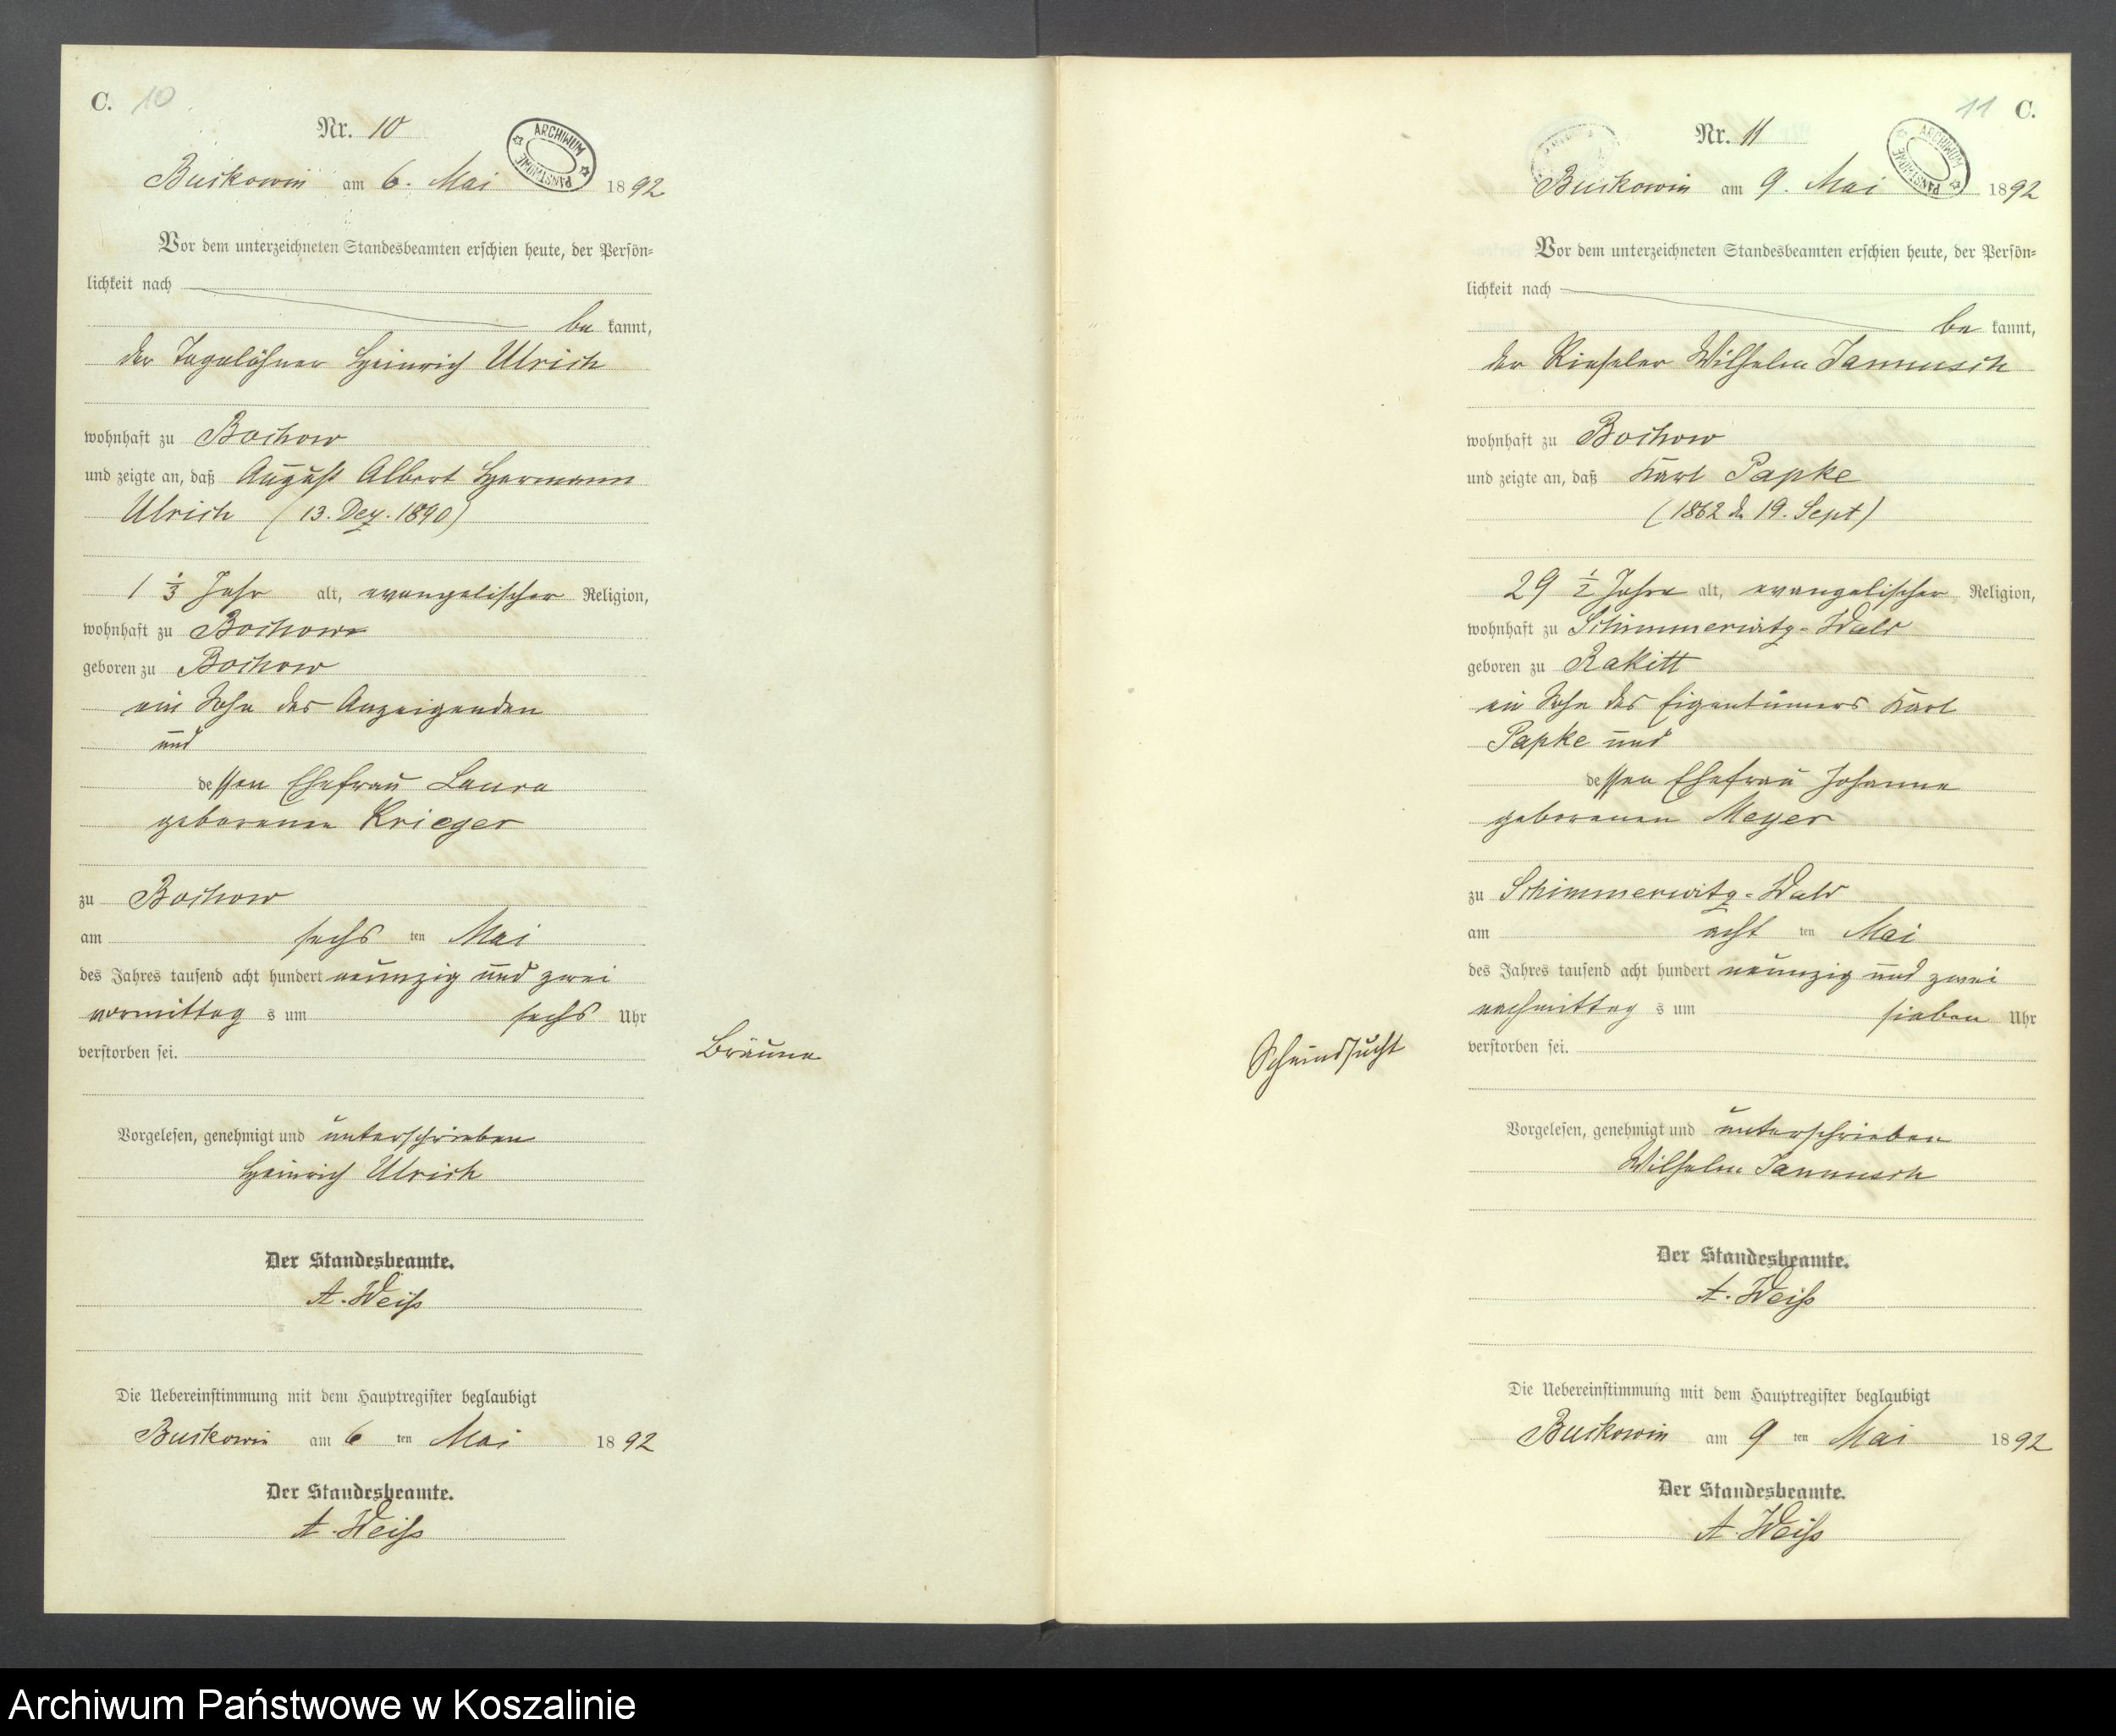 C. 10
Nr. 10
ARCHIWUM PAŃSTWOWE
Buckowin am 6. Mai 1892
Vor dem unterzeichneten Standesbeamten erschien heute, der Persön-
lichkeit nach
be kannt,
der Tagelöhner Heinrich Ulrich
wohnhaft zu Bochow
und zeigte an, daß August Albert Hermann
Ulrich (13. Dez. 1890)
1 1/3 Jahr alt, evangelischer Religion,
wohnhaft zu Bochow
geboren zu Bochow
ein Sohn des Anzeigenden
und
dessen Ehefrau Laura
geborenen Krieger
zu Bochow
am sechs ten Mai
des Jahres tausend acht hundert neunzig und zwei
vormittag s um sechs Uhr
verstorben sei.
Bräune
Vorgelesen, genehmigt und unterschrieben
Heinrich Ulrich
Der Standesbeamte.
A. Weiß
Die Uebereinstimmung mit dem Hauptregister beglaubigt
Buckowin am 6 ten Mai 1892
Der Standesbeamte.
A. Weiß
11 C.
Nr. 11
ARCHIWUM PAŃSTWOWE
Buckowin am 9. Mai 1892
Vor dem unterzeichneten Standesbeamten erschien heute, der Persön-
lichkeit nach
be kannt,
der Rieseler Wilhelm Jannusch
wohnhaft zu Bochow
und zeigte an, daß Karl Papke
(1862 d. 19. Sept)
29 1/2 Jahre alt, evangelischer Religion,
wohnhaft zu Schimmerwitz-Wald
geboren zu Rakitt
ein Sohn des Eigentümers Karl
Papke und
dessen Ehefrau Johanne
geborenen Meyer
zu Schimmerwitz-Wald
am acht ten Mai
des Jahres tausend acht hundert neunzig und zwei
nachmittag s um sieben Uhr
verstorben sei.
Schwindsucht
Vorgelesen, genehmigt und unterschrieben
Wilhelm Jannusch
Der Standesbeamte.
A. Weiß
Die Uebereinstimmung mit dem Hauptregister beglaubigt
Buckowin am 9 ten Mai 1892
Der Standesbeamte.
A. Weiß
Archiwum Państwowe w Koszalinie